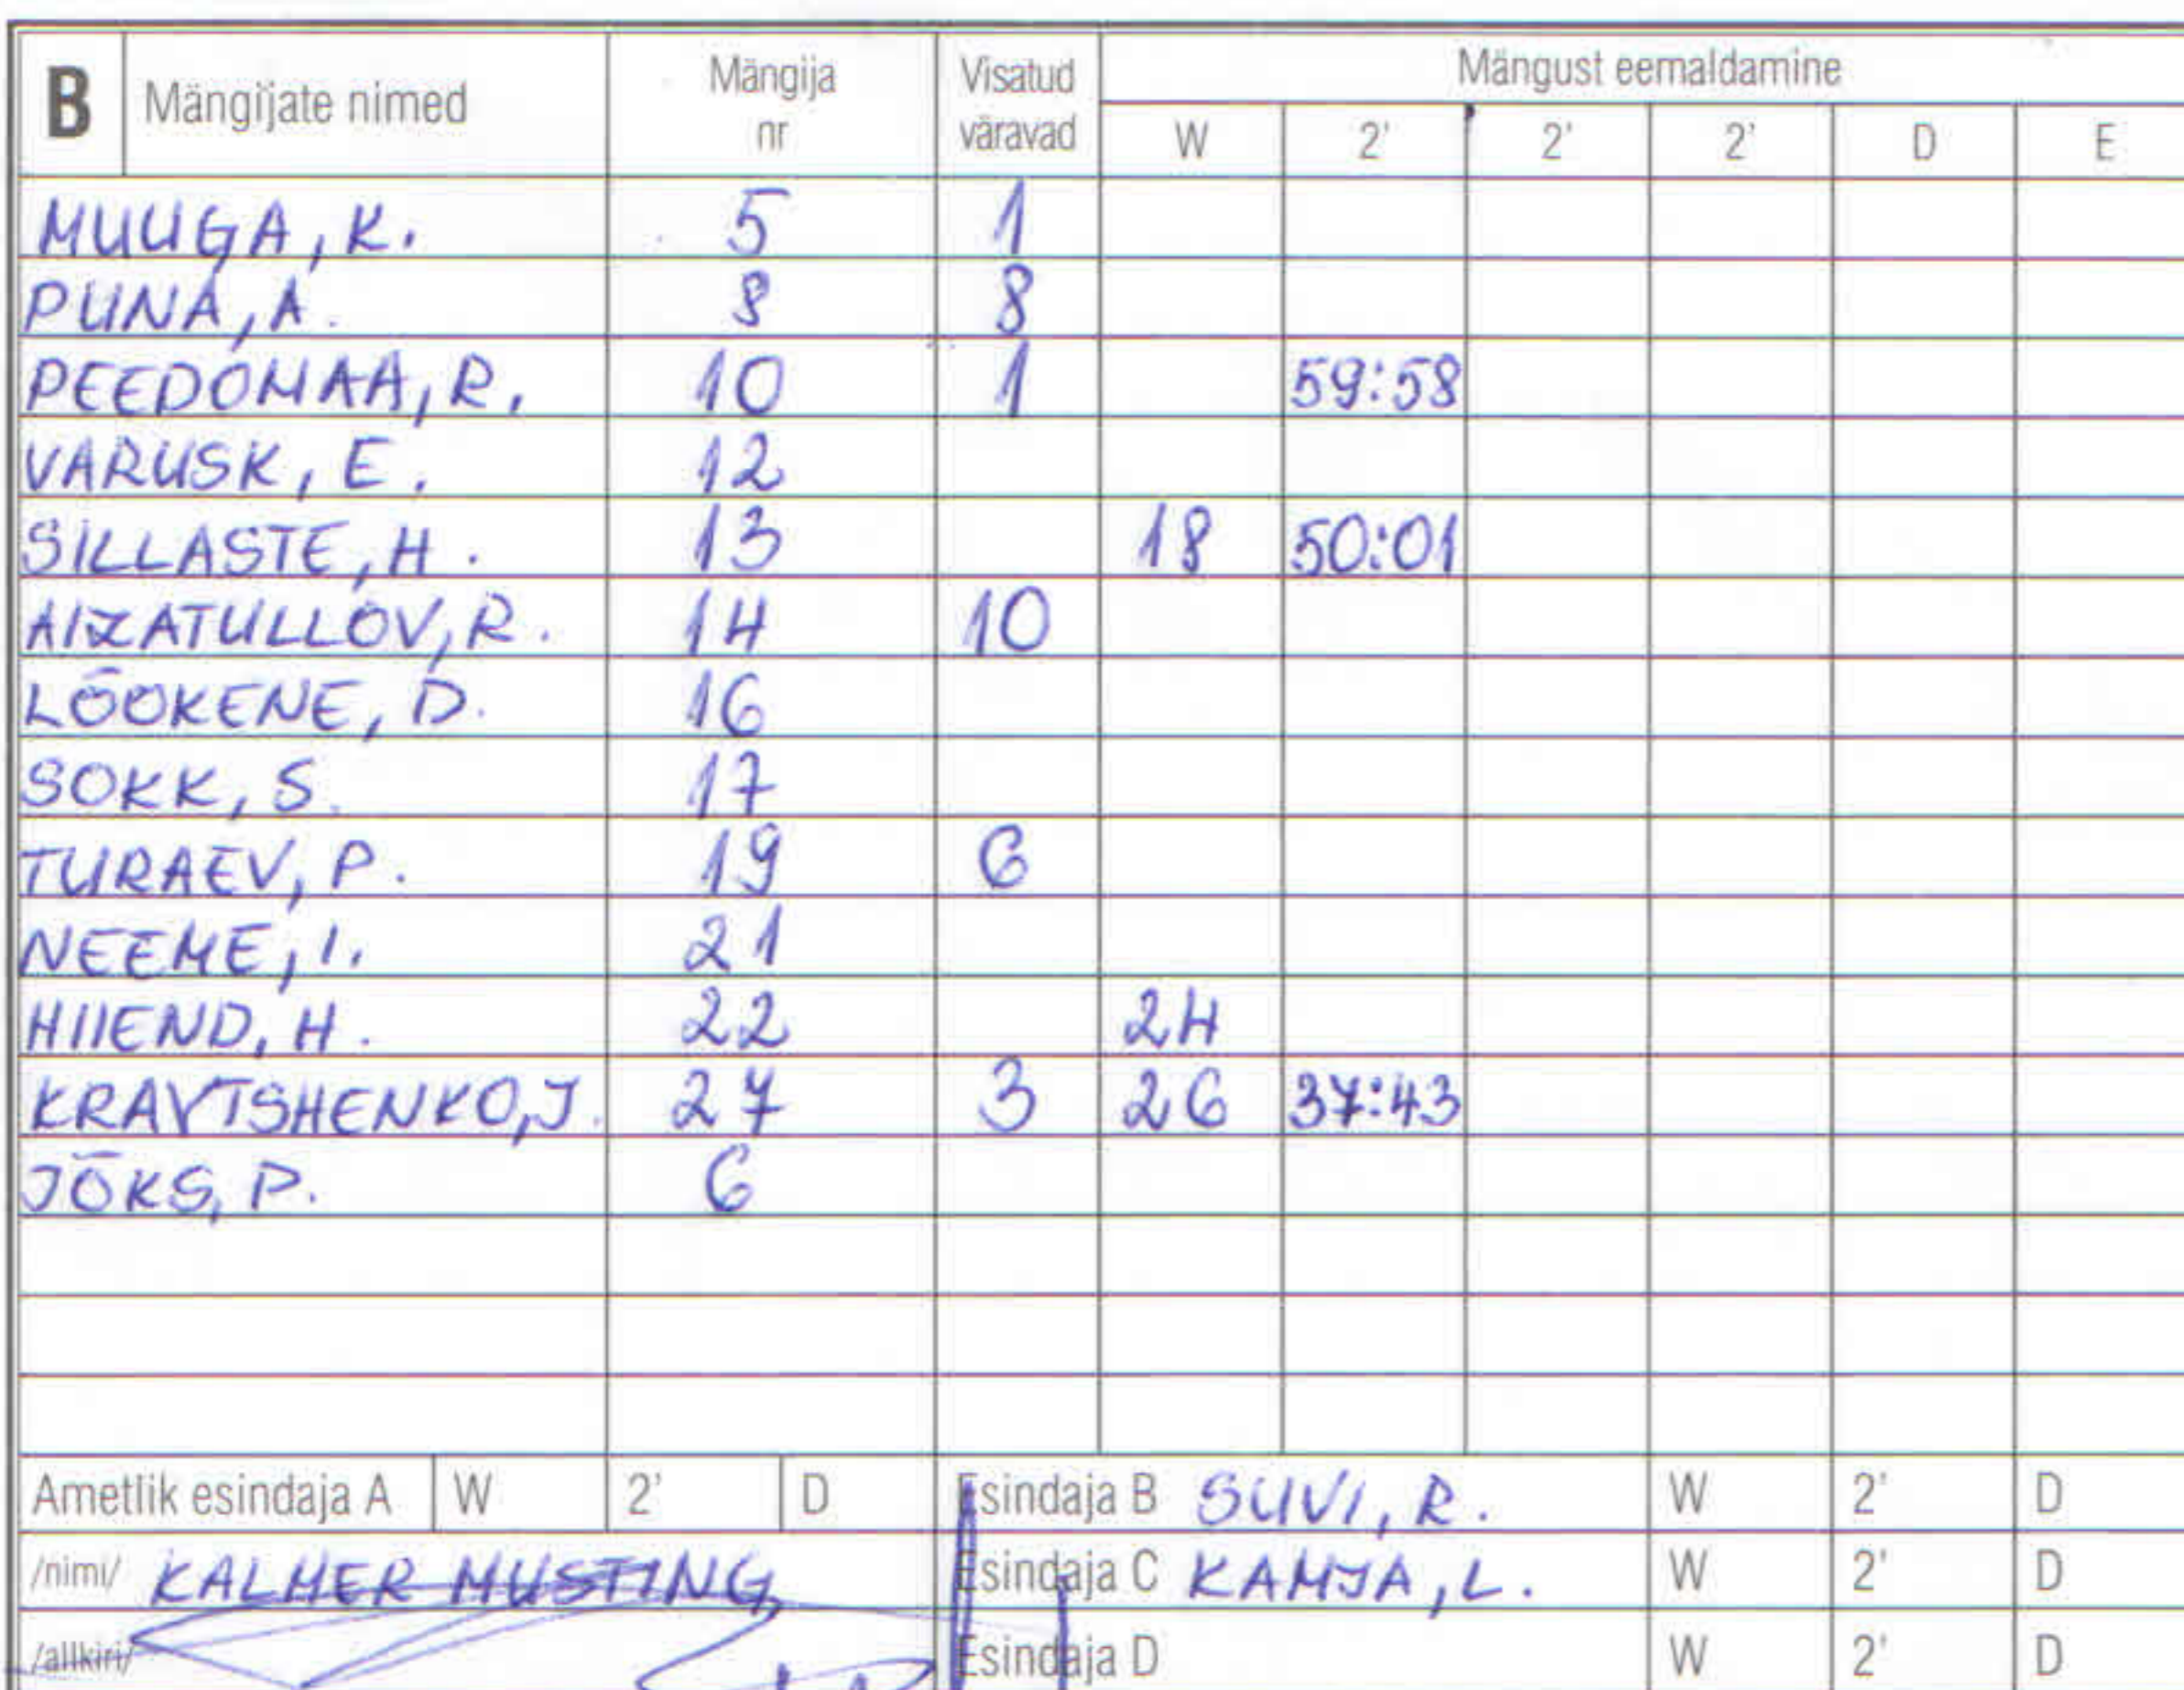 B Mängijate nimed Mängija nr Visatud väravad Mängust eemaldamine
W 2' 2' 2' D E
MUUGA, K. 5 1
PUNA, A. 8 8
PEEDOMAA, R. 10 1 59:58
VARUSK, E. 12
SILLASTE, H. 13 18 50:01
AIZATULLOV, R. 14 10
LÕOKENE, D. 16
SOKK, S. 17
TURAEV, P. 19 6
NEEME, I. 21
HIIEND, H. 22 24
KRAVTSHENKO, J. 27 3 26 37:43
JÕKS, P. 6
Ametlik esindaja A W 2' D Esindaja B SUVI, R. W 2' D
/nimi/ KALMER MUSTING Esindaja C KAMJA, L. W 2' D
/allkiri/ Esindaja D W 2' D